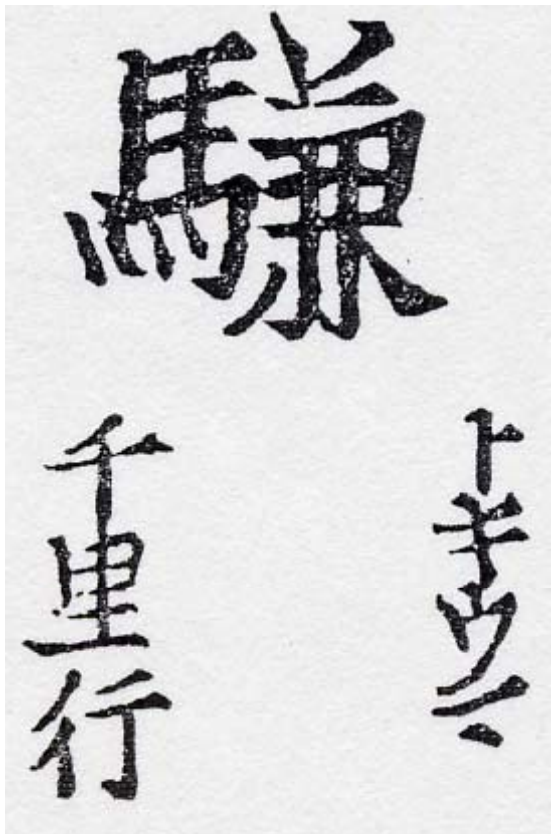 トキウマ
千里行